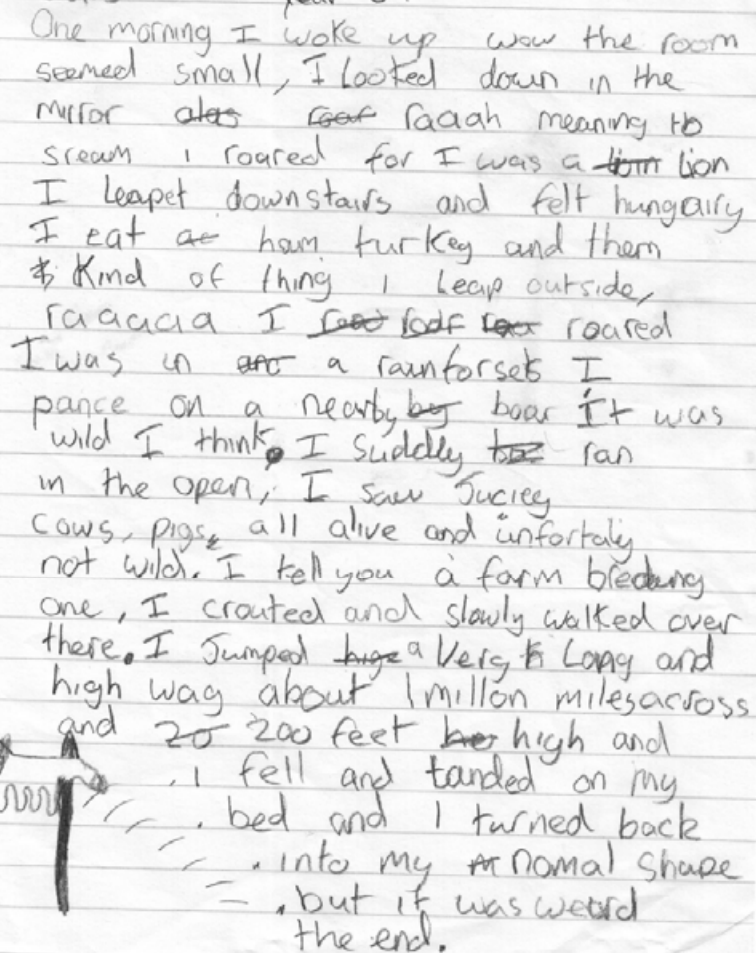 One morning I woke up wow the room
seemed small, I looked down in the
mirror alas roar raaah meaning to
sream i roared for I was a lion lion
I leapet downstairs and felt hungairy
I eat ac ham turkey and them
& Kind of thing i leap outside,
raaaaa I roo roar roa roared
I was in anc a rainforsets I
pance on a nearby by boar It was
wild I think. I suddly ran
in the open, I saw Juciey
cows, pigs, all alive and unfortaly
not wild. I tell you a farm bredung
one, I crouted and slowly walked over
there. I Jumped hige a Very h Long and
high way about 1 millon miles across
and 20 200 feet he high and
i fell and tanded on my
bed and I turned back
into my nomal shape
but it was weard
the end.